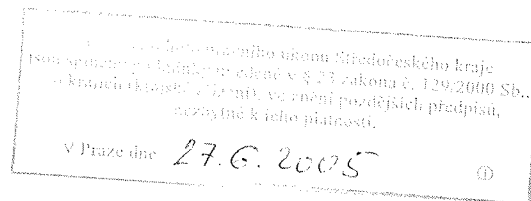 právního úkonu Středočeského kraje
jsou splněny podmínky uvedené v § 23 zákona č. 129/2000 Sb.,
o krajích (krajské zřízení), ve znění pozdějších předpisů,
nezbytné k jeho platnosti.
V Praze dne 27.6.2005